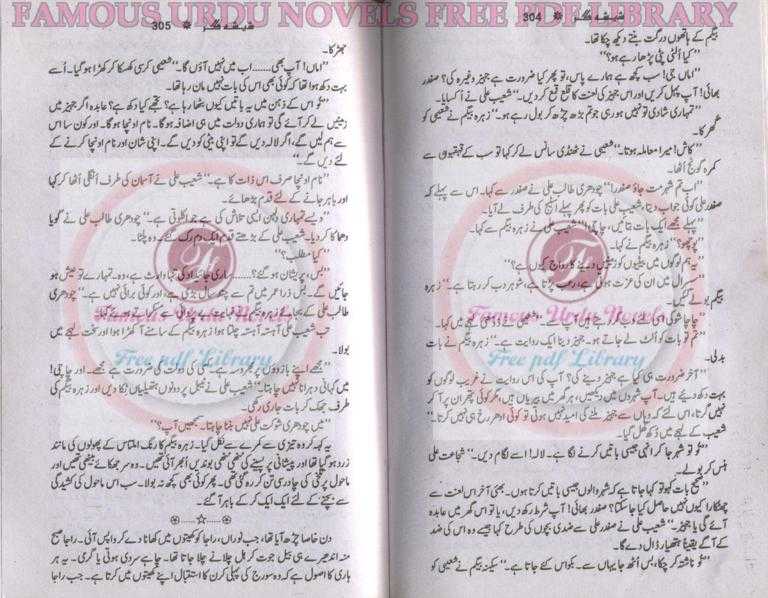 FAMOUS URDU NOVELS FREE PDF LIBRARY
304 شیشہ گر
بیگم کے ہاتھوں درگت بنتے دیکھ چکا تھا۔
"کیا الٹی پٹی پڑھا رہے ہو؟"
"اماں جی! سب کچھ ہے ہمارے پاس، تو پھر کیا ضرورت ہے جہیز وغیرہ کی؟ صفدر
بھائی! آپ پہل کریں اور اس جہیز کی لعنت کا قلع قمع کر دیں۔" شعیب علی نے اُکسایا۔
"تمہاری شادی تو نہیں ہو رہی جو تم بڑھ چڑھ کر بول رہے ہو۔" زہرہ بیگم نے شعیبی کو
گھرکا۔
"کاش! میرا معاملہ ہوتا۔" شعیبی نے ٹھنڈی سانس لے کر کہا تو سب کے قہقہوں سے
کمرہ گونج اُٹھا۔
"اب تم شہر مت جاؤ صفدر!" چودھری طالب علی نے صفدر سے کہا۔ اس سے پہلے کہ
صفدر علی کوئی جواب دیتا، شعیب علی بات کو پھر پہلے اسٹیج کی طرف لے آیا۔
"پہلے مجھے ایک بات بتائیں، چاچی!" شعیب علی نے زہرہ بیگم سے کہا۔
"پوچھو؟" زہرہ بیگم نے کہا۔
"یہ ہم لوگوں میں بیٹیوں کو زمینیں دینے کا رواج کیوں ہے؟"
"سسرال میں ان کی عزت ہوتی ہے، رعب پڑتا ہے، شوہر دب کر رہتا ہے۔" زہرہ
بیگم بولے گئیں۔
"تم تو بات کو الٹ لے جاتے ہو۔ جہیز دینا ایک روایت ہے۔" زہرہ بیگم نے بات
بدلی۔
"آخر ضرورت ہی کیا ہے جہیز دینے کی؟ آپ کی اس روایت نے غریب لوگوں کو
بہت دکھ دیئے ہیں۔ آپ شہروں میں دیکھیں، ہر گھر میں بیریاں ہیں، مگر کوئی پتھر ان پر آ کر
نہیں گرتا، اس لئے کہ وہاں سے جہیز ملنے کی امید نہیں ہوتی تو کوئی ادھر رخ ہی نہیں کرتا۔"
شعیب کے لہجے میں دکھ گھل گیا۔
"تُو تو شہر جا کر انہی جیسی باتیں کرنے لگا ہے۔ لالہ! اسے لگام دیں۔" شجاعت علی
ہنس کر بولے۔
"صحیح بات کہو تو کہا جاتا ہے کہ شہر والوں جیسی باتیں کرتا ہوں۔ بھئی آخر اس لعنت سے
چھٹکارا کیوں نہیں حاصل کیا جا سکتا؟ صفدر بھائی! آپ شرط رکھ دیں، یا تو اس گھر میں عابدہ
آئے گی یا جہیز۔" شعیب علی نے صفدر علی سے ضدی بچوں کی طرح کہا جیسے وہ اس کی ضد
کے آگے یقیناً ہتھیار ڈال دے گا۔
"تُو ناشتہ کر چکا، بس اُٹھ جا یہاں سے۔ بکواس کئے جاتا ہے۔" سکینہ بیگم نے شعیبی کو
شیشہ گر 305
جھڑکا۔
"اماں! آپ بھی....... اب میں نہیں آؤں گا۔" شعیبی کرسی کھسکا کر کھڑا ہو گیا۔ اُسے
بہت دکھ ہوا تھا کہ کوئی بھی اس کی بات نہیں مان رہا تھا۔
"تُو اس کے ذہن میں یہ باتیں کیوں بٹھا رہا ہے؟ تجھے کیا دکھ ہے؟ عابدہ اگر جہیز میں
زمینیں لے کر آئے گی تو ہماری دولت میں ہی اضافہ ہو گا۔ نام اونچا ہو گا۔ اور کون سا اس
سے ہم لیں گے، اگر لالہ دیں گے تو اپنی بیٹی کو دیں گے۔ اپنی شان اور نام اونچا کرنے کے
لئے دیں گے۔"
"نام اونچا صرف اس ذات کا ہے۔" شعیب علی نے آسمان کی طرف انگلی اُٹھا کر کہا
اور باہر جانے کے لئے قدم بڑھائے۔
"ویسے تمہاری دلہن ایسی تلاش کی ہے جو اکلوتی ہے۔" چودھری طالب علی نے گویا
دھماکا کر دیا۔ شعیب علی کے بڑھتے قدم ایک دم رک گئے۔ وہ پلٹا۔
"کیا مطلب؟"
"بس، پریشان ہو گئے؟....... ساری جائیداد کی تنہا وارث ہے، وہ۔ تمہارے تو عیش ہو
جائیں گے۔ بس ذرا عمر میں تم سے چند سال بڑی ہے، اور کوئی برائی نہیں ہے۔" چودھری
تب شعیب علی آہستہ آہستہ چلتا ہوا زہرہ بیگم کے سامنے آ کھڑا ہوا اور سخت لہجے میں
بولا۔
"مجھے اپنے بازوؤں پر بھروسہ ہے۔ کسی کی دولت کی ضرورت ہے مجھے۔ اور چاچی!
میں کہانی دہرانا نہیں چاہتا۔" شعیب علی نے ٹیبل پر دونوں ہتھیلیاں ٹکا دیں اور زہرہ بیگم کی
طرف جھک کر بات جاری رکھی۔
"میں چودھری شوکت علی نہیں بننا چاہتا۔ سمجھیں آپ؟"
یہ کہہ کر وہ تیزی سے کمرے سے نکل گیا۔ زہرہ بیگم کا رنگ املتاس کے پھولوں کی مانند
زرد ہو گیا تھا اور پیشانی پر پسینے کی ننھی ننھی بوندیں ابھر آئی تھیں۔ وہ سر جھکائے بیٹھی تھیں اور
ماحول پر تلخی کی چادر سی تن کر رہ گئی تھی۔ پھر کوئی بھی کچھ نہ بولا۔ سب اس ماحول کی کشیدگی
سے بچنے کے لئے ایک ایک کر کے باہر آ گئے۔
دن خاصا چڑھ آیا تھا، جب نوراں، راجا کو کھیتوں میں کھانا دے کر واپس آئی۔ راجا صبح
منہ اندھیرے ہی بیل جوت کر ہل چلانے چلا جاتا تھا۔ چاہے سردی ہوتی یا گرمی۔ یہ ہر
ہاری کا اصول ہے کہ وہ سورج کی پہلی کرن کا استقبال اپنے کھیتوں میں کرتا ہے۔ جب راجا
Famous Urdu Novels
Free pdf Library
Famous Urdu Novels
Free pdf Library